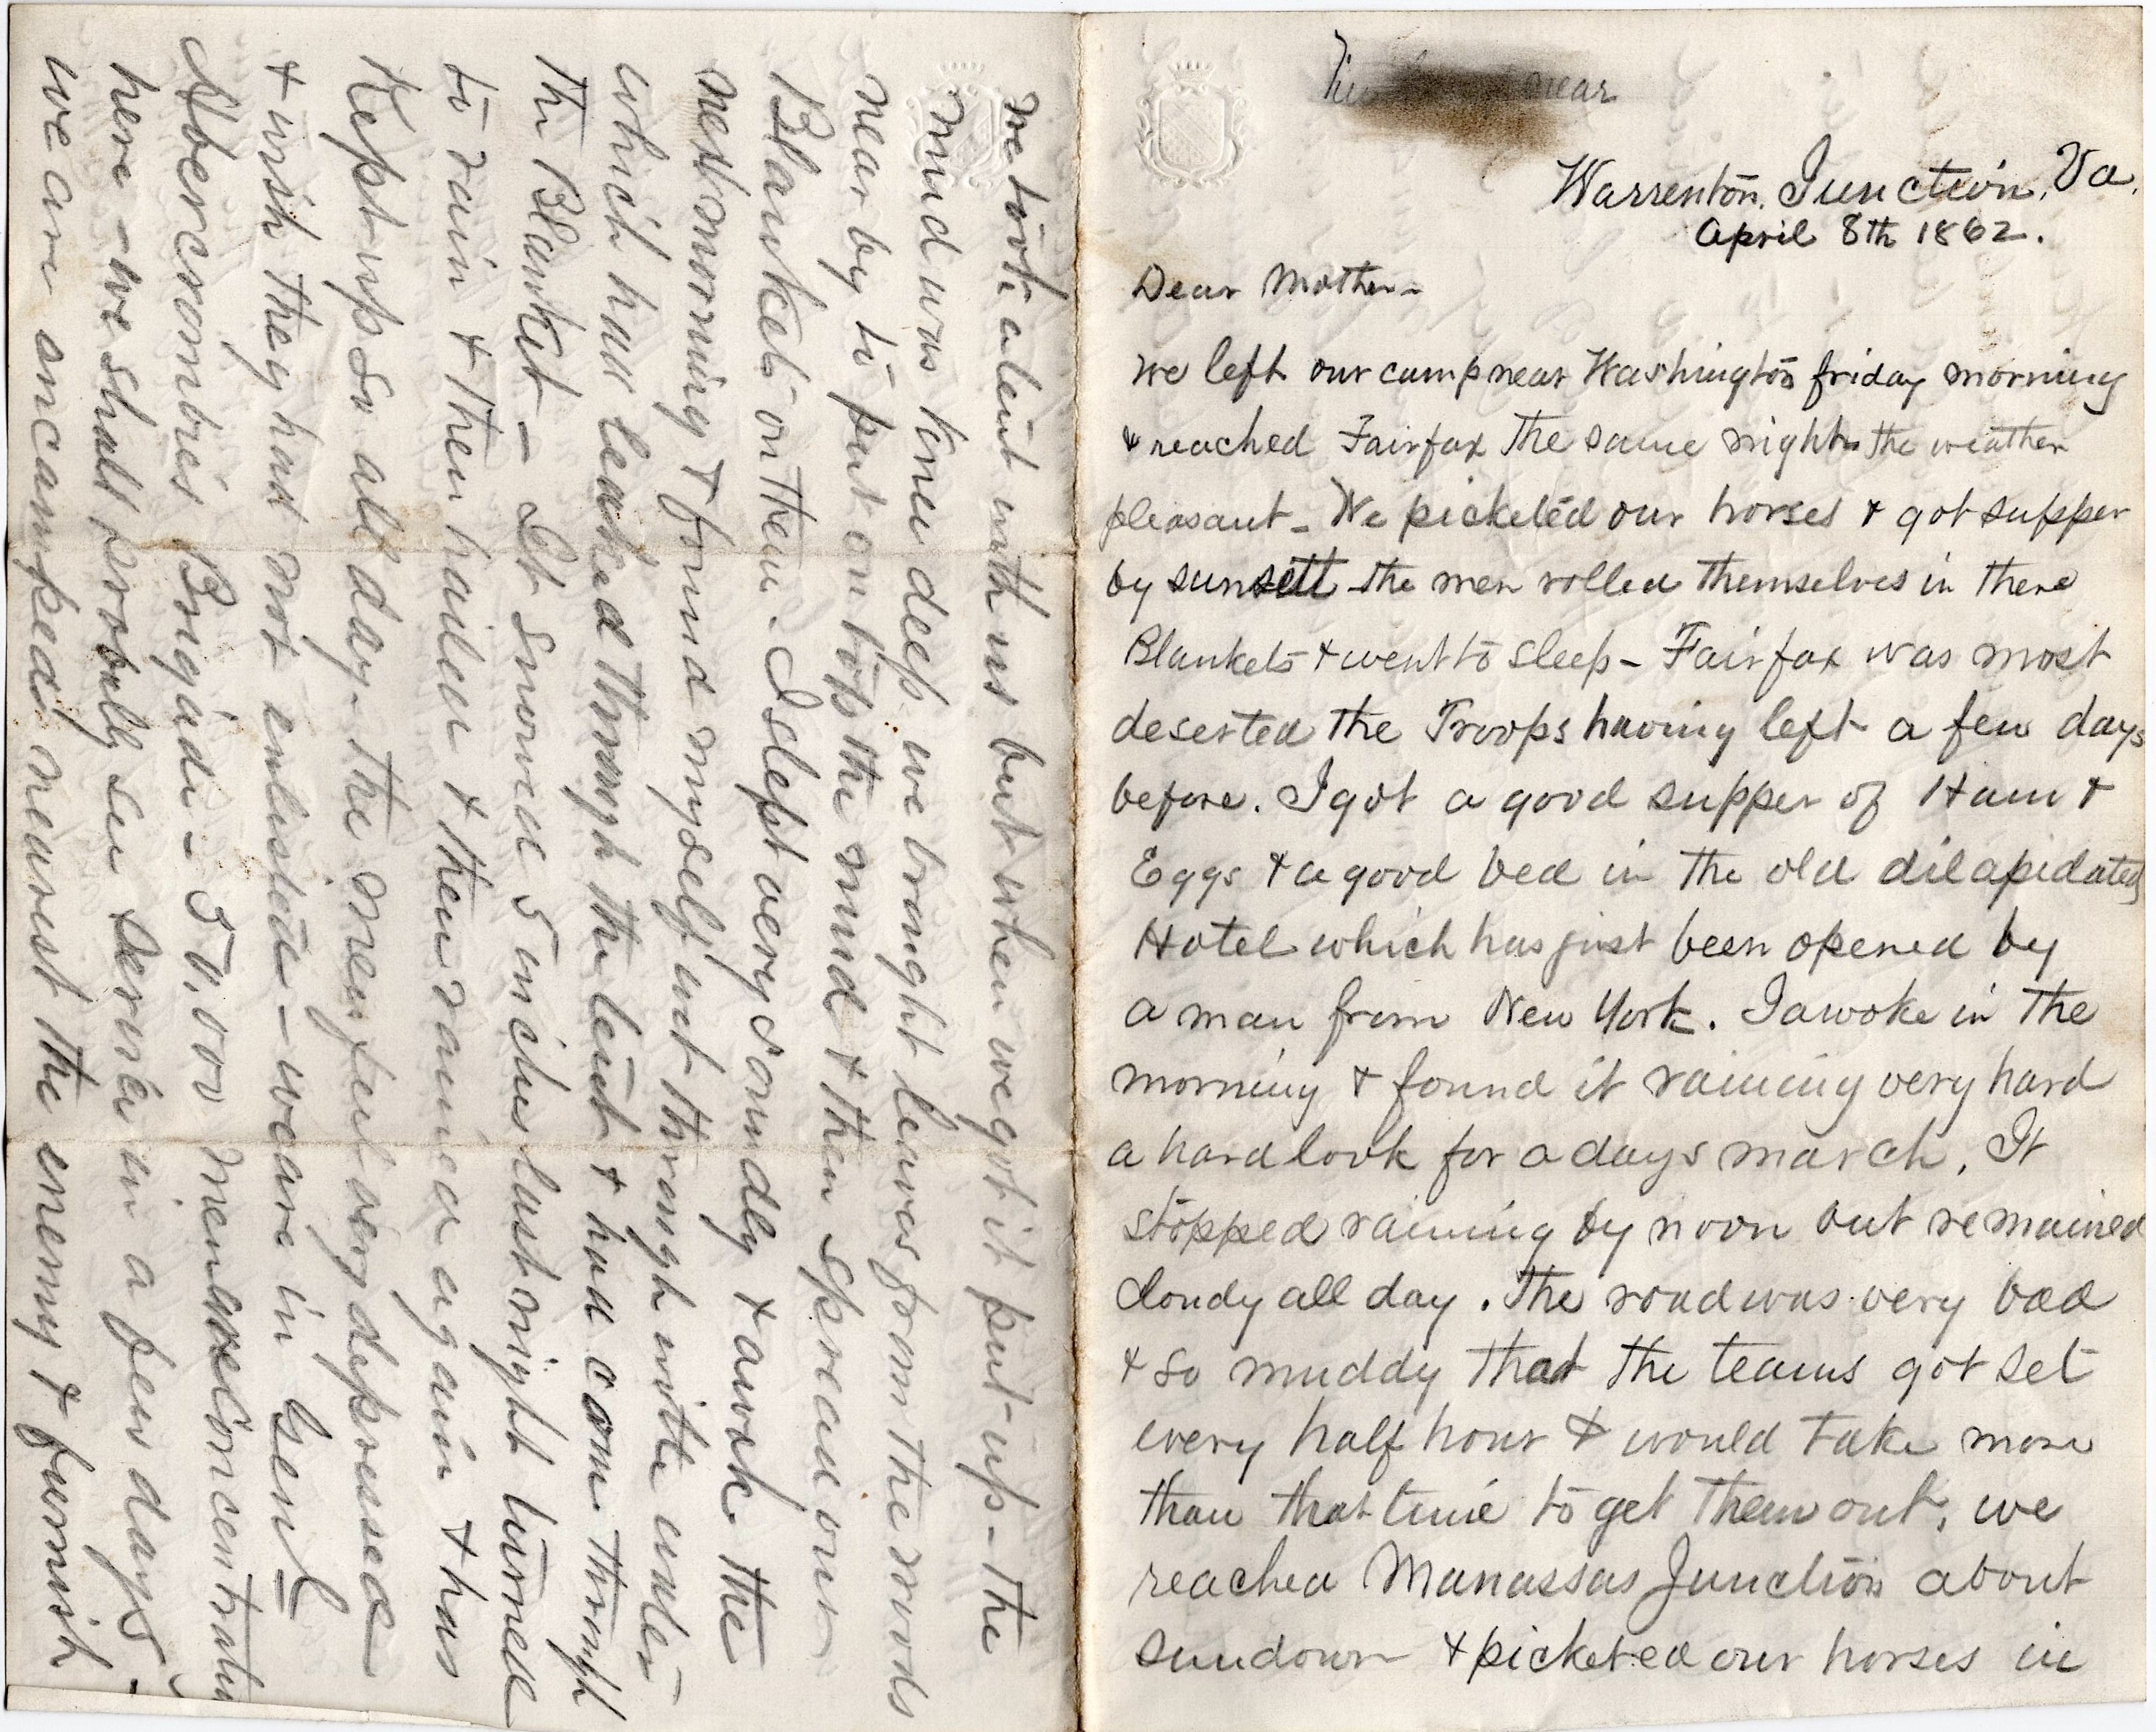 near
Warrenton, Junction, Va.
April 8th 1862.
Dear Mother-
We left our camp near Washington friday morning
& reached Fairfax the same night the weather
pleasant - We picketed our horses & got supper
by sunsett the men rolled themselves in there
Blankets & went to sleep - Fairfax was most
deserted the Troops having left a few days
before. I got a good supper of Ham &
Eggs & a good bed in the old dilapidated
Hotel which has just been opened by
a man from New York. I awoke in the
morning & found it raining very hard
a hard look for a days march. It
stopped raining by noon but remained
cloudy all day. The road was very bad
& so muddy that the teams got set
every half hour & would take more
than that time to get them out, we
reached Manassas Junction about
sundown & picketed our horses in
We took a tent with us but when we got it put up - the
mud was knee deep we brought leaves from the woods
near by to put on top the mud & then spread our
Blankets on them - I slept very soundly & awoke the
next morning & found myself wet through with water
which had leaked through the tent & had come through
the Blanket - It snowed 5 inches last night turned
to rain & then hailed & then rained again & has
Kept up so all day - the men feel very depressed
& wish they had not enlisted - we are in Genl
Abercrombies Brigade - 50,000 men are concentrating
here - we shall probably see service in a few days -
we are encamped nearest the enemy & furnish